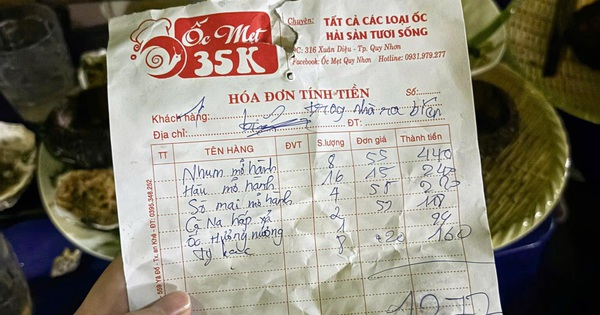 Ốc Mẹt
35K
Chuyên: TẤT CẢ CÁC LOẠI ỐC
HẢI SẢN TƯƠI SỐNG
ĐC: 316 Xuân Diệu - Tp. Quy Nhơn
Facebook: Ốc Mẹt Quy Nhơn Hotline: 0931.979.277
HÓA ĐƠN TÍNH TIỀN Số:
Khách hàng: nhà ra
Địa chỉ: ĐT:
TT TÊN HÀNG ĐVT S.lượng Đơn giá Thành tiền
Nhum mỡ hành 8 55 440
Hàu mỡ hành 16 15 240
Sò mai mỡ hành 4 55
Cà Na hấp xả 2
Ốc Hương nướng 1
8 20 160
ĐT: 0395.348.252